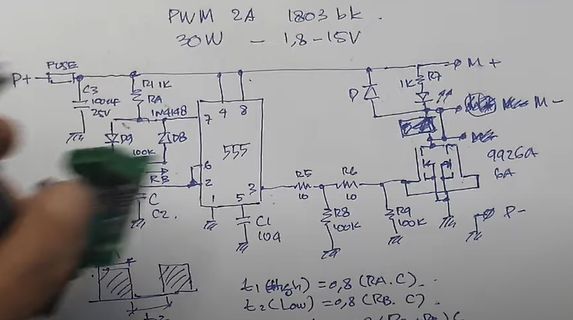 PWM 2A 1803 bk.
30W - 1,8-15V
FUSE
P+
R1 1K
RA
C3
100uF
25V
1N4148
D9
D8
100K
RB
C
C2.
7
4
8
555
6
2
1
5
3
C1
104
R5
10
R6
10
R8
100K
R9
100K
D
1K
R7
M+
M-
9926A
6A
P-
t1 (High) = 0,8 (RA.C).
t2 (Low) = 0,8 (RB.C)